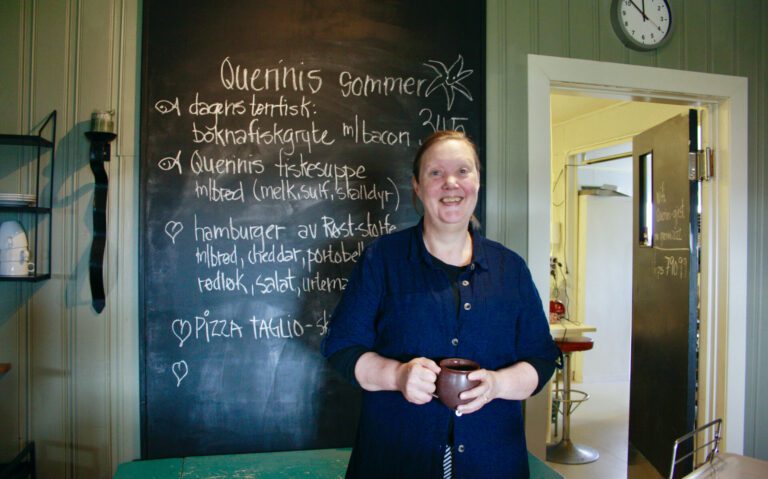 Querinis sommer
dagens tørrfisk:
boknafiskgryte m/bacon 345
Querinis fiskesuppe
m/brød (melk, sulf, skalldyr)
hamburger av Røst-storfe
m/brød, cheddar, portobel
rødløk, salat, urter
PIZZA TAGLIO - sk